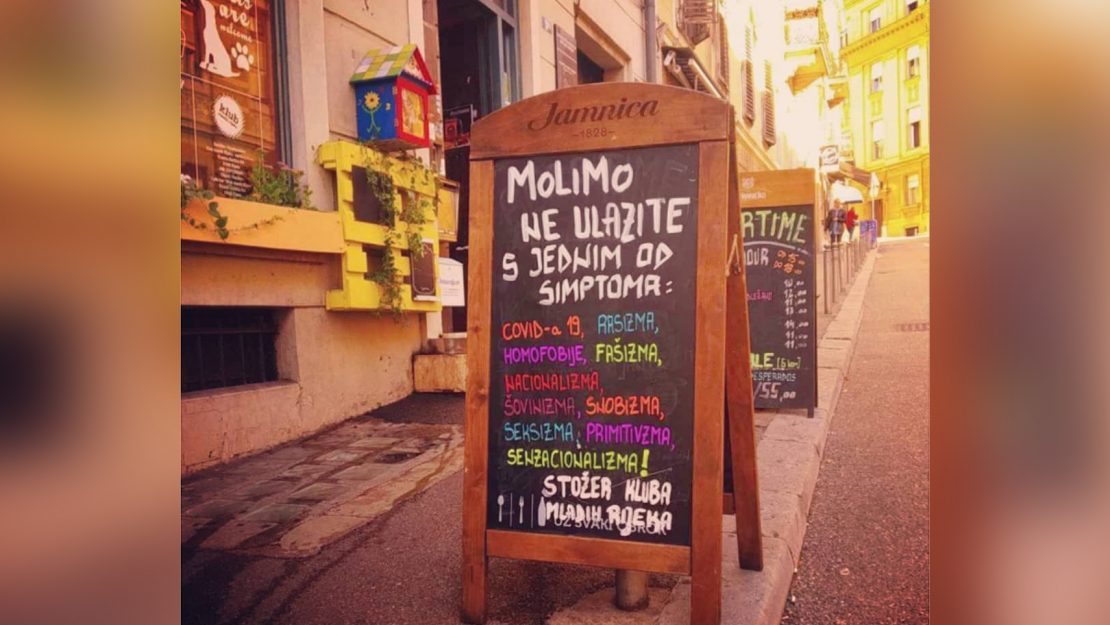 are
welcome
klub
Jamnica
-1828-
MOLIMO
NE ULAZITE
S JEDNIM OD
SIMPTOMA:
COVID-a 19, RASIZMA,
HOMOFOBIJE, FAŠIZMA,
NACIONALIZMA,
ŠOVINIZMA, SNOBIZMA,
SEKSIZMA, PRIMITIVZMA,
SENZACIONALIZMA!
STOŽER KLUBA
MLADIH RIJEKA
UZ SVAKI OBROK
RTIME
OUR
ESPERADOS
/55,00